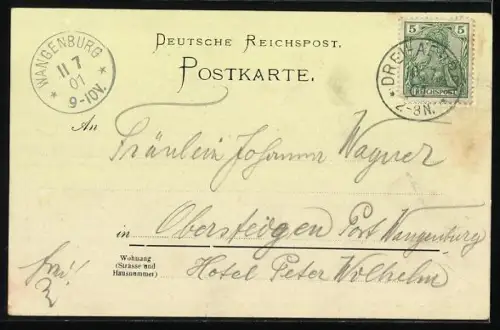 WANGENBURG
11 7
01
9-10V.
DEUTSCHE REICHSPOST.
POSTKARTE.
5 5
REICHSPOST
2-3N.
An Fräulein Johanna Wagner
in Obersteigen Post Wangenburg
Wohnung
(Strasse und
Hausnummer)
Hotel Peter Wilhelm